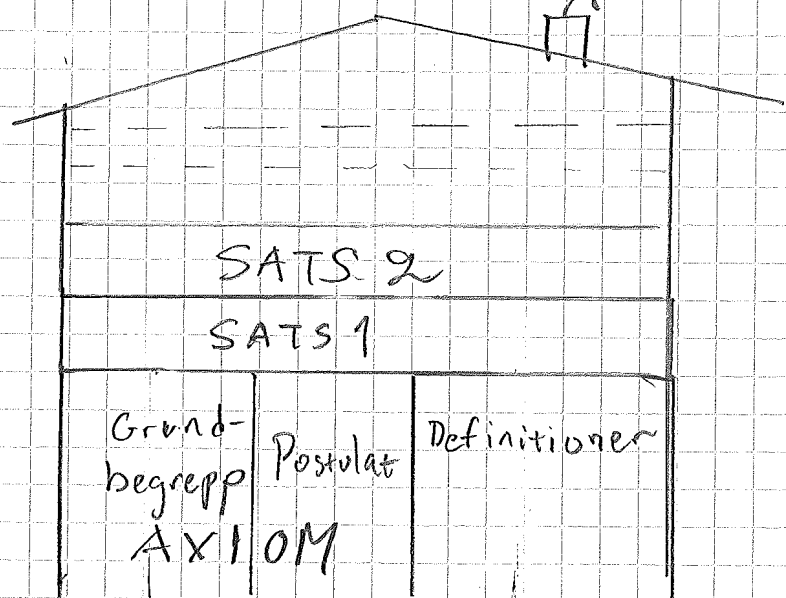 SATS 2
SATS 1
Grund-
begrepp
Postulat
Definitioner
AXIOM